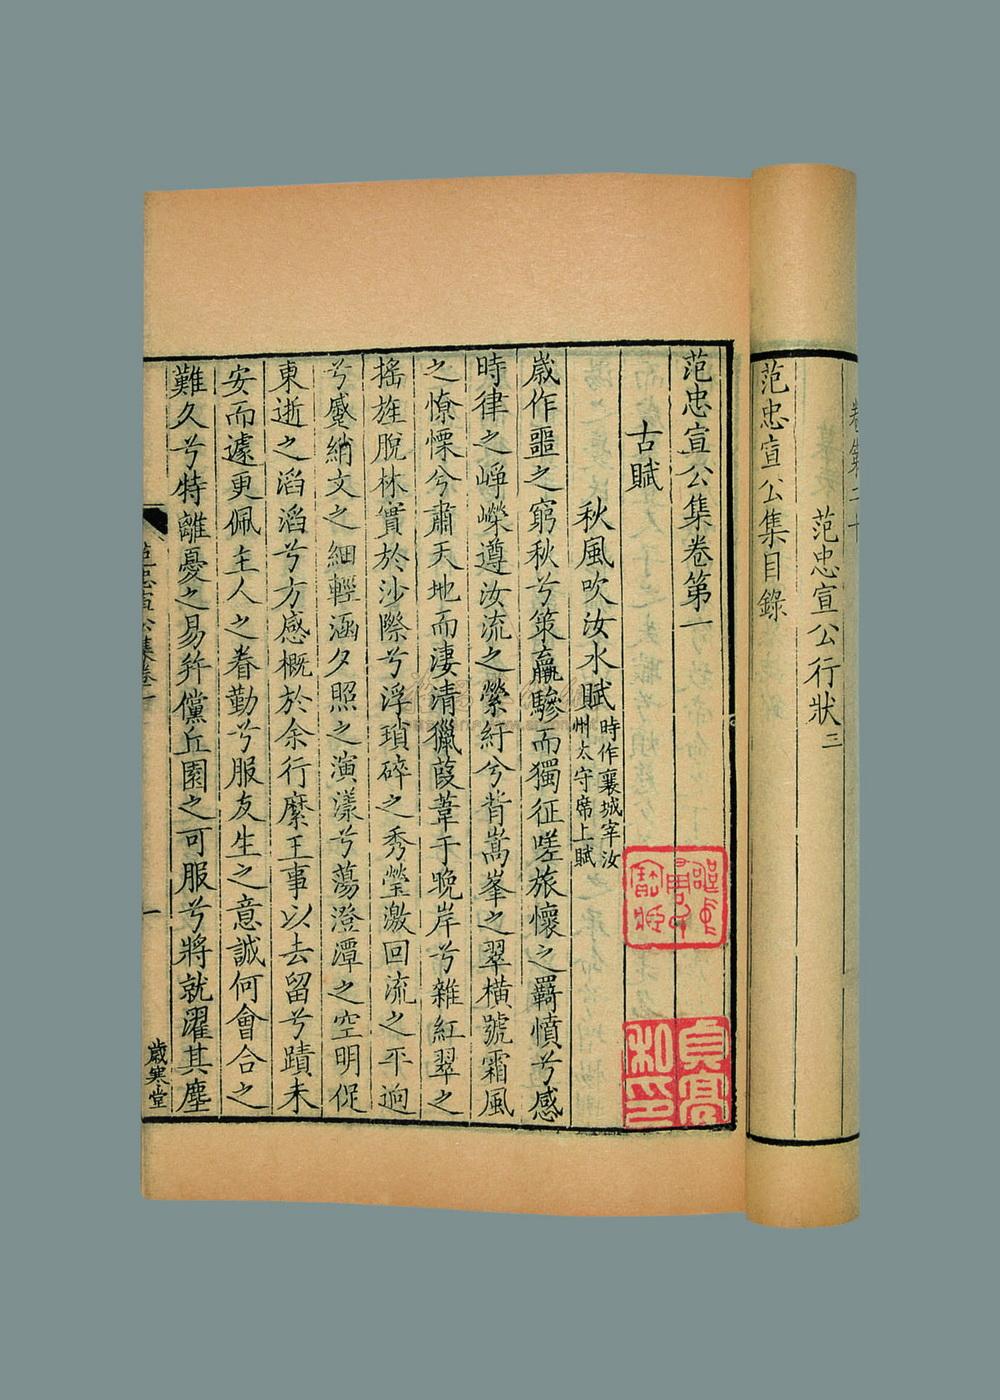 卷第二十
范忠宣公行狀三
范忠宣公集目錄
范忠宣公集卷第一
古賦
秋風吹汝水賦時作襄城宰汝
州太守席上賦
嵗作噩之窮秋兮策羸驂而獨征嗟旅懷之羇憤兮感
時律之崢嶸遵汝流之縈紆兮背嵩峯之翠橫號霜風
之憭慄兮肅天地而淒清獵葭葦于晚岸兮雜紅翠之
搖旌脫林實於沙際兮浮瑣碎之秀瑩激回流之平逈
兮蹙綃文之細輕涵夕照之演漾兮蕩澄潭之空明促
東逝之滔滔兮方感概於余行縻王事以去留兮蹟未
安而遽更佩主人之眷勤兮服友生之意誠何會合之
難久兮特離憂之易并儻丘園之可服兮將就濯其塵
一
歲寒堂
貞亭
私印